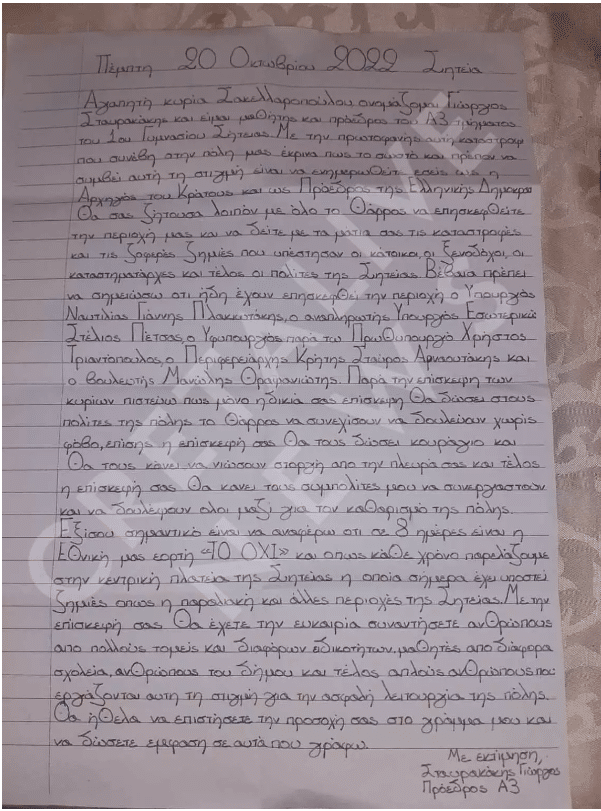 Πέμπτη 20 Οκτωβρίου 2022 Σητεία
Αγαπητή κυρία Σακελλαροπούλου ονομάζομαι Γιώργος
Σταυρακάκης και είμαι μαθητης και πρόεδρος του Α3 τμήματος
του 1ου Γυμνασίου Σητείας. Με την πρωτοφανής αυτή καταστροφή
που συνέβη στην πόλη μας έκρινα πως το σωστό και πρέπον να
συμβεί αυτή τη στιγμή είναι να ενημερωθείτε εσείς ως η
Αρχηγός του Κράτους και ως Πρόεδρος της Ελληνικής Δημοκρα
Θα σας ζητούσα λοιπόν με όλο το Θάρρος να επησκεφθείτε
την περιοχή μας και να δείτε με τα ματια σας τις καταστροφές
και τις ζοφερές ζημίες που υπέστησαν οι κάτοικοι, οι ξενοδόχοι, οι
καταστηματάρχες και τέλος οι πολίτες της Σητείας. Βέβαια πρέπει
να σημειώσω οτι ήδη έχουν επησκεφθεί την περιοχή ο Υπουργός
Ναυτιλίας Γιάννης Πλακιωτάκης, ο αναπληρωτής Υπουργός Εσωτερικών
Στέλιος Πέτσας, ο Υφυπουργός παρά τω Πρωθυπουργό Χρήστος
Τριαντόπουλος, ο Περιφερειάρχης Κρήτης Σταύρος Αρναουτάκης και
ο Βουλευτής Μανώλης Θραψανιώτης. Παρά την επίσκεψη των
κυρίων πιστεύω πως μόνο η δικιά σας επίσκεψη Θα δώσει στους
πολίτες της πόλης το Θάρρος να συνεχίσουν να δουλεύουν χωρίς
φόβο, επίσης η επισκεψή σας Θα τους δώσει κουράγιο και
Θα τους κάνει να νιώσουν στοργή απο την πλευρά σας και τέλος
η επισκεψή σας Θα κανει τους συμπολίτες μου να συνεργαστούν
και να δουλεψουν ολοι μαζί για τον καθαρισμό της πόλης.
Εξίσου σημαντικό είναι να αναφέρω οτι σε 8 ημέρες είναι η
Εθνική μας εορτή «ΤΟ ΟΧΙ» και οπως κάθε χρόνο παρελάζουμε
στην κεντρική πλατεία της Σητείας η οποία σήμερα έχει υποστεί
ζημιές οπως η παραλιακή και άλλες περιοχές της Σητείας. Με την
επισκεψή σας Θα έχετε την ευκαιρία συναντήσετε ανθρώπους
απο πολλούς τομείς και διαφόρων ειδικοτήτων, μαθητές απο διάφορα
σχολεία, ανθρώπους του δήμου και τέλος απλούς ανθρώπους που
εργάζονται αυτη τη στιγμή για την ασφαλή λειτουργία της πόλης.
Θα ήθελα να επιστήσετε την προσοχή σας στο γράμμα μου και
να δώσετε εμφαση σε αυτά που γράφω.
Με εκτίμηση,
Σταυρακάκης Γιώργος
Πρόεδρος Α3
CRETALIVE
NEWS